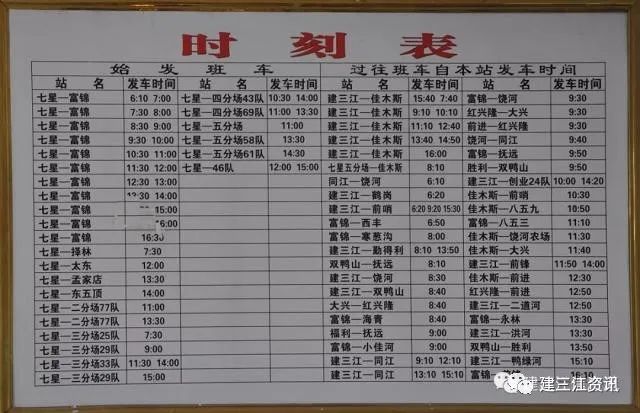 时刻表
始发班车 过往班车自本站发车时间
站名 发车时间 站名 发车时间 站名 发车时间 站名 发车时间
七星—富锦 6:10 7:00 七星—四分场43队 10:30 14:00 建三江—佳木斯 15:40 7:40 富锦—饶河 9:30
七星—富锦 7:30 8:00 七星—四分场69队 11:00 13:30 建三江—佳木斯 9:10 10:10 红兴隆—大兴 9:30
七星—富锦 8:30 9:00 七星—五分场 11:00 建三江—佳木斯 11:10 12:40 前进—红兴隆 9:30
七星—富锦 9:30 10:00 七星—五分场58队 13:30 建三江—佳木斯 13:40 14:50 饶河—同江 9:40
七星—富锦 10:30 11:00 七星—五分场61队 14:30 建三江—佳木斯 16:00 富锦—抚远 9:50
七星—富锦 11:30 12:00 七星—46队 12:00 15:00 七星五分场—佳木斯 8:10 胜利—双鸭山 9:50
七星—富锦 12:30 13:00 同江—饶河 6:10 建三江—创业24队 10:00 14:20
七星—富锦 14:00 建三江—鹤岗 6:20 佳木斯—前哨 10:30
七星—富锦 15:00 建三江—前哨 6:20 9:20 15:30 佳木斯—八五九 10:50
七星—富锦 16:00 富锦—西丰 6:50 富锦—八五三 11:10
七星—富锦 16:30 富锦—寒葱沟 8:00 佳木斯—饶河农场 11:30
七星—择林 7:30 建三江—勤得利 8:10 13:50 佳木斯—大兴 11:40
七星—太东 12:00 双鸭山—抚远 8:10 建三江—前锋 11:50 14:00
七星—孟家店 13:30 同江—饶河 8:30 佳木斯—前进 12:30
七星—东五顶 14:00 建三江—双鸭山 8:40 红兴隆—前进 12:50
七星—二分场77队 11:00 大兴—红兴隆 8:40 建三江—二道河 12:50
七星—二分场77队 13:30 富锦—海青 8:40 富锦—永林 13:30
七星—三分场25队 7:30 福利—抚远 9:00 建三江—洪河 13:30
七星—三分场29队 9:00 富锦—小佳河 9:00 建三江—双鸭山 13:50
七星—三分场33队 11:30 14:00 建三江—同江 9:10 12:10 建三江—鸭绿河 15:10
七星—三分场29队 15:00 建三江—同江 13:10 15:10 富锦— 16:10
建三江资讯